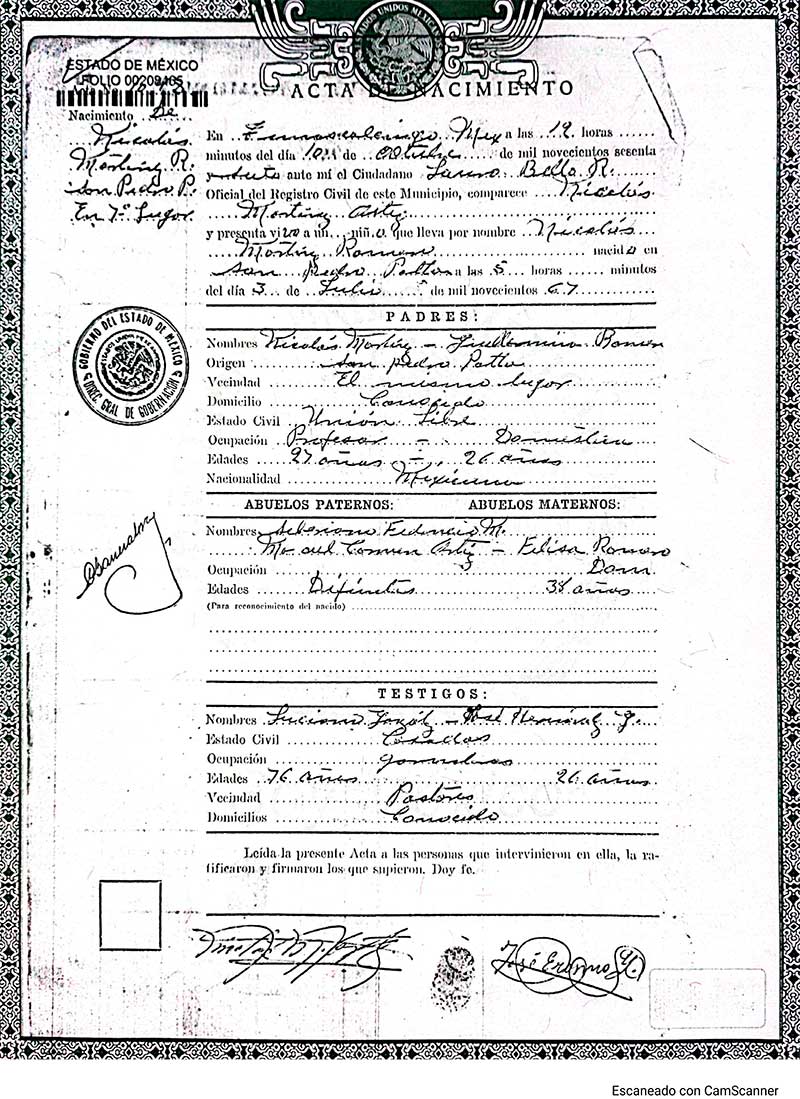 ESTADOS UNIDOS MEXICANOS
ESTADO DE MÉXICO
FOLIO
ACTA DE NACIMIENTO
Nacimiento De
Nicolás
Martínez R.
San Pedro P.
En 7º Lugar
En Mex a las 12 horas
minutos del día 10 de Octubre de mil novecientos sesenta
y siete ante mí el Ciudadano Bello R.
Oficial del Registro Civil de este Municipio, comparece Nicolás
Martínez
y presenta vivo a un niño que lleva por nombre Nicolás
Martínez Romero nacido en
San Pedro Potla a las 5 horas minutos
del día 3 de Julio de mil novecientos 67
PADRES:
Nombres Nicolás Martínez - Romero
Origen San Pedro Potla
Vecindad El mismo lugar
Domicilio Conocido
Estado Civil Unión Libre
Ocupación Profesor - Doméstica
Edades 27 años - 26 años
Nacionalidad Mexicana
ABUELOS PATERNOS: ABUELOS MATERNOS:
Nombres M.
Ma. del Carmen - Elisa Romero
Ocupación Dom.
Edades Difuntos 38 años
(Para reconocimiento del nacido)
TESTIGOS:
Nombres Luciano - José
Estado Civil Casados
Ocupación
Edades 76 años 26 años
Vecindad Pastores
Domicilios Conocido
Leída la presente Acta a las personas que intervinieron en ella, la ra-
tificaron y firmaron los que supieron. Doy fe.
José
GOBIERNO DEL ESTADO DE MEXICO
DIREC. GRAL. DE GOBERNACION
Escaneado con CamScanner